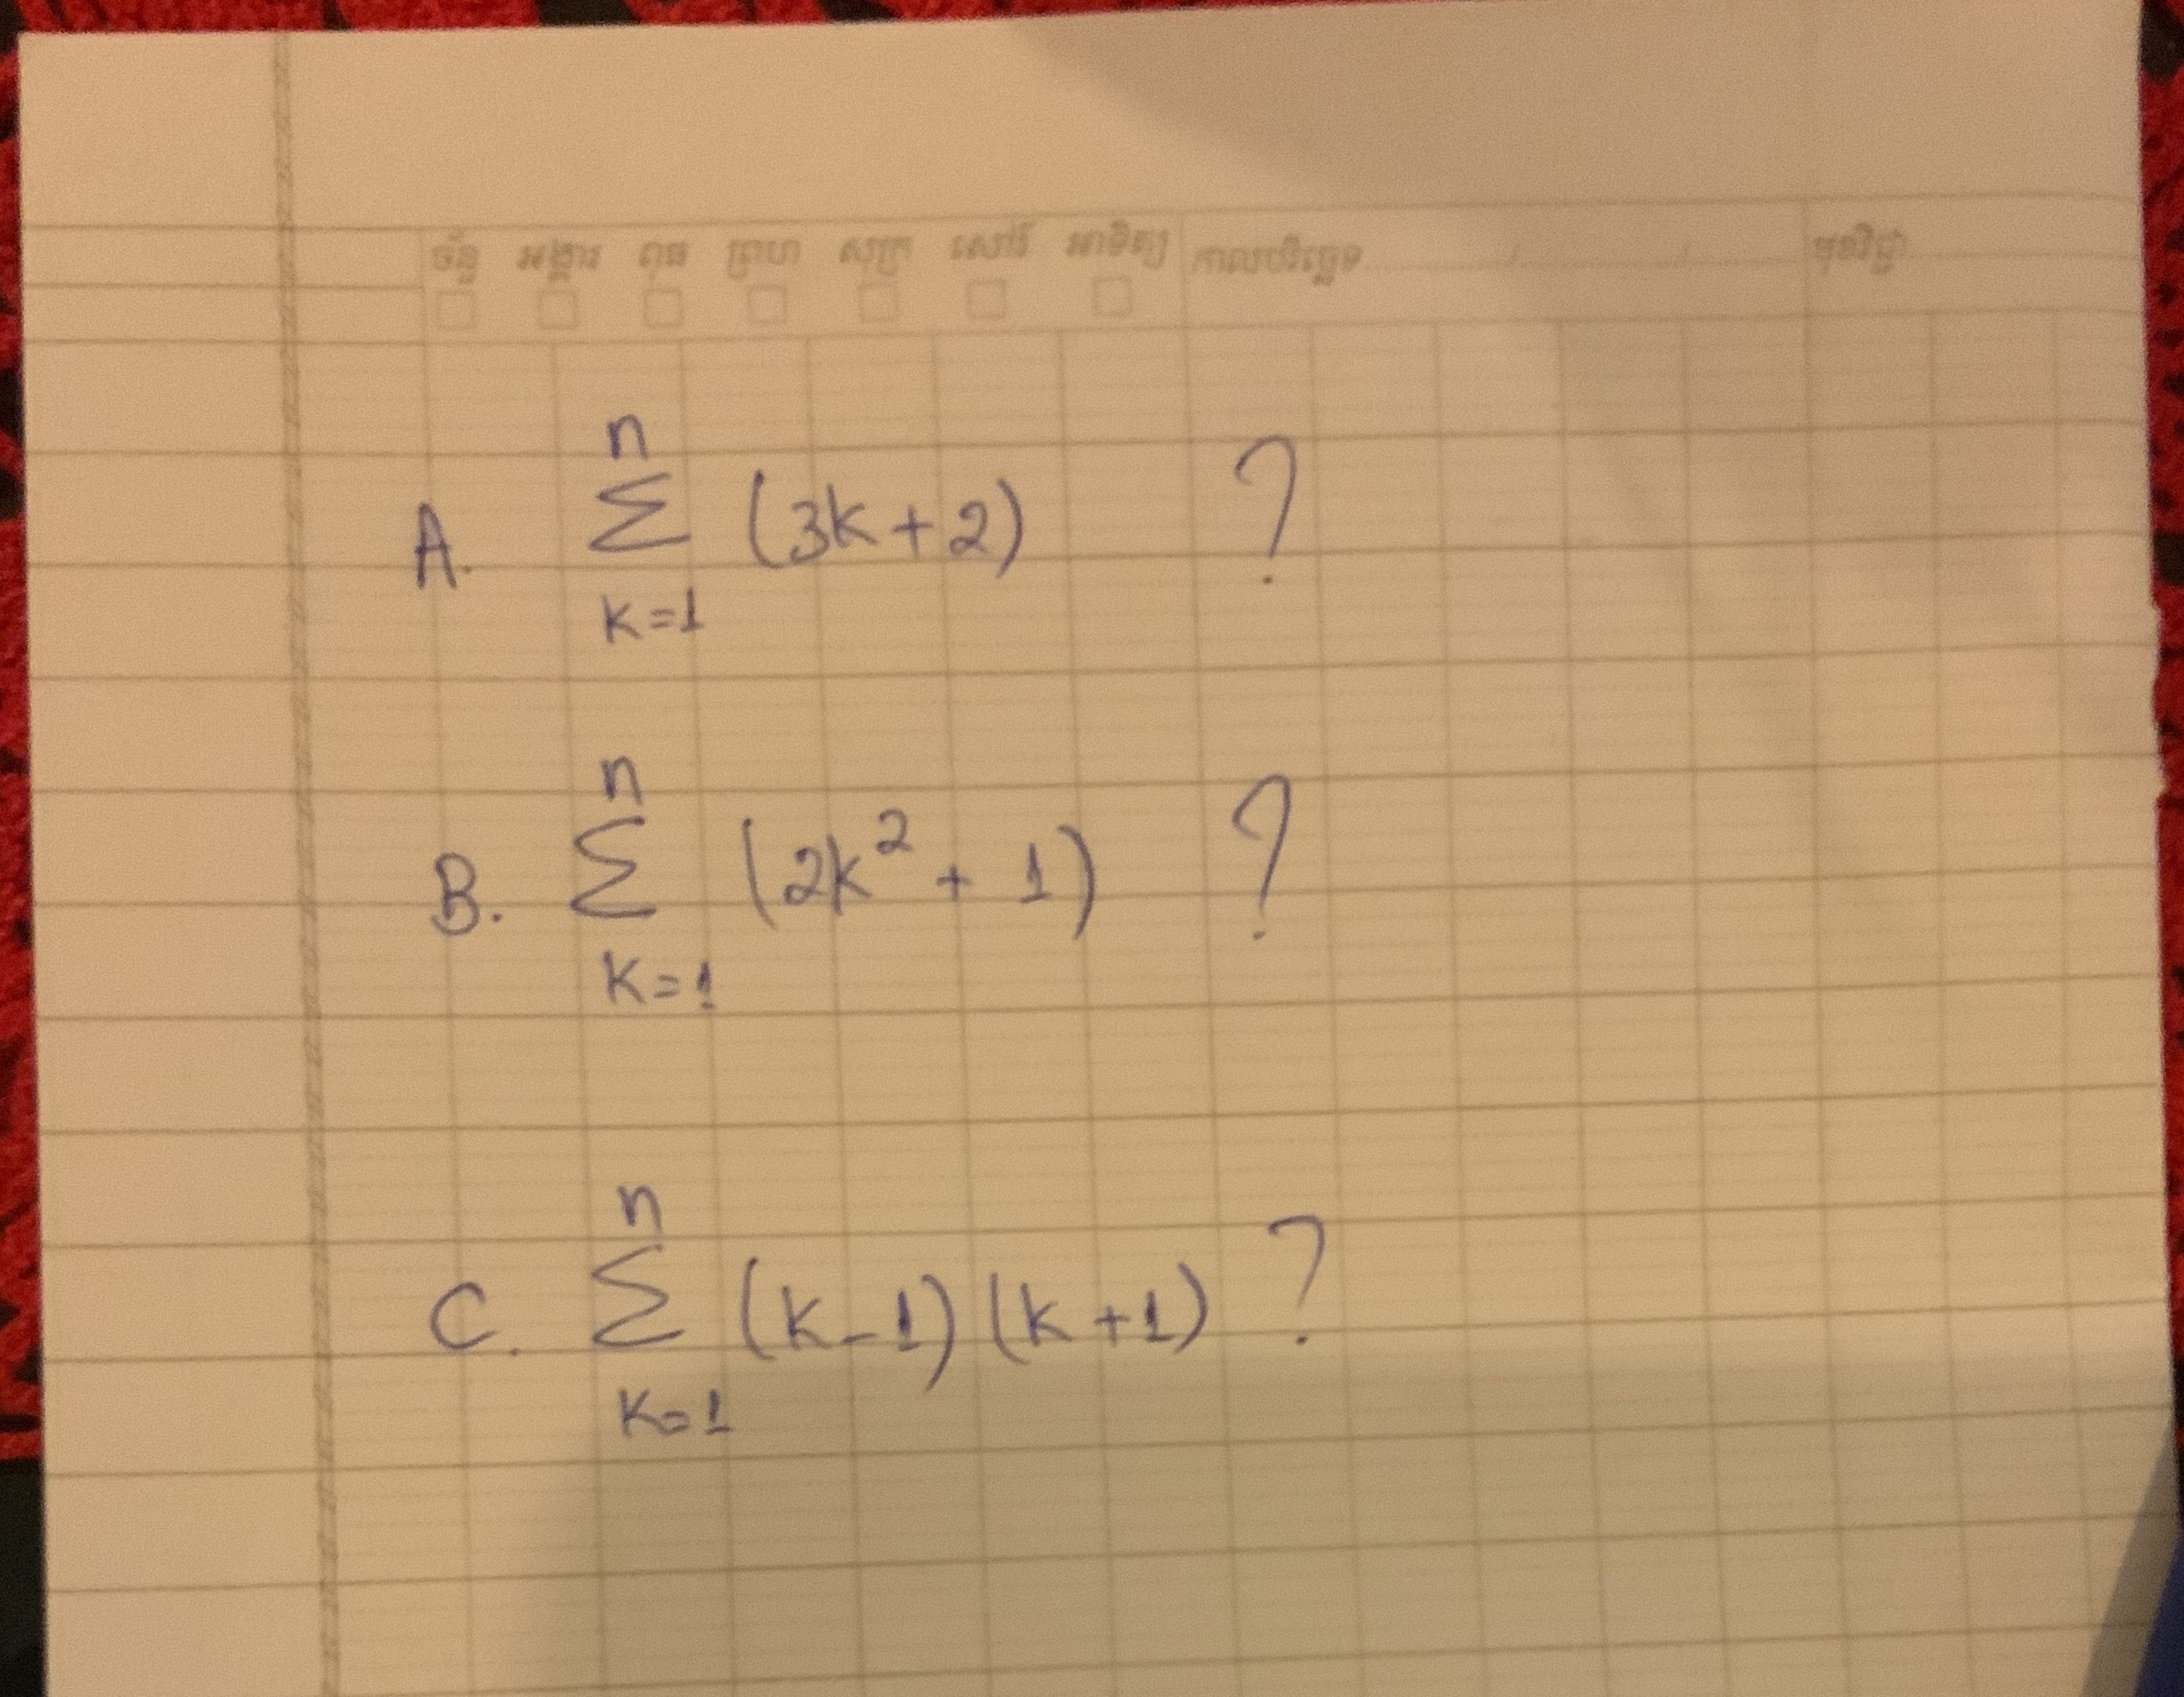 ច័ន្ទ អង្គារ ពុធ ព្រហ សុក្រ សៅរ៍ អាទិត្យ កាលបរិច្ឆេទ / / មុខវិជ្ជា
A. n∑k=1 (3k+2) ?
B. n∑k=1 (2k²+1) ?
C. n∑k=1 (k-1)(k+1) ?